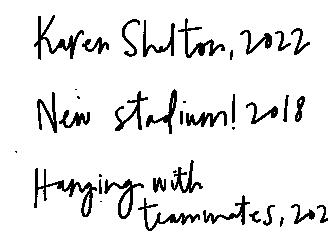 Karen Shelton, 2022
New stadium! 2018
Hanging with
teammates, 202